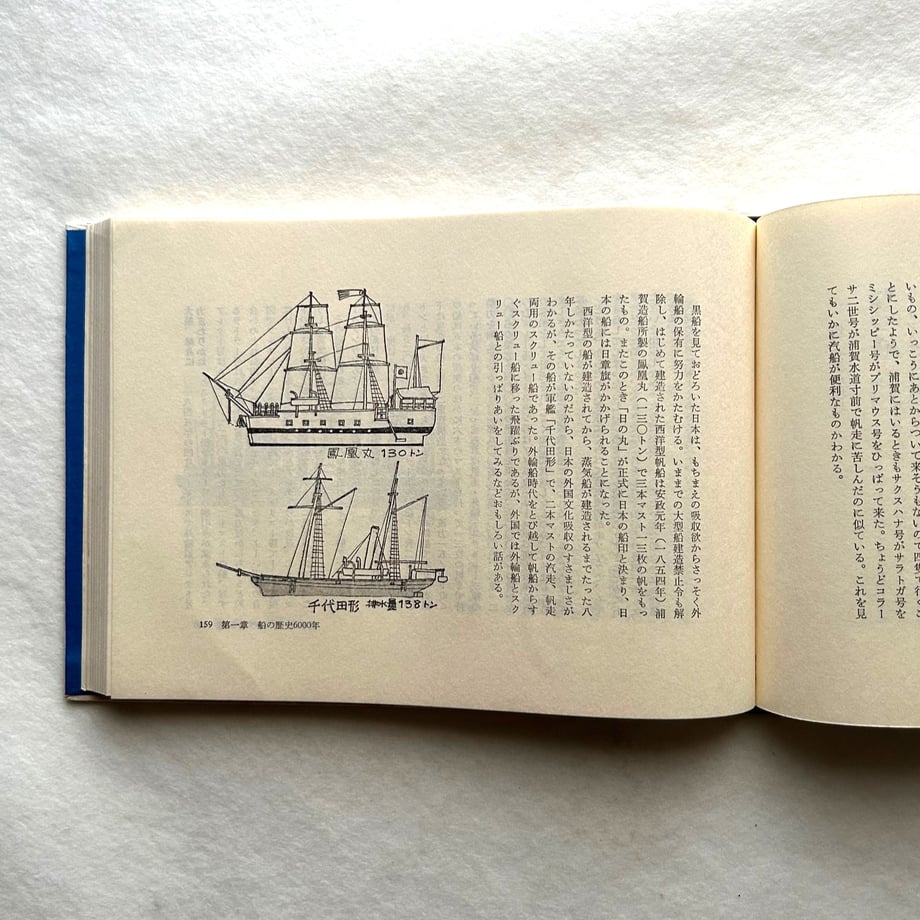 いもの、いっこうにあとからついて来そうもないので四隻
とにしたようで、浦賀にはいるときもサクスハナ号がサラトガ号を
ミシシッピー号がプリマウス号をひっぱって来た。ちょうどコラー
サ二世号が浦賀水道寸前で帆走に苦しんだのに似ている。これを見
てもいかに汽船が便利なものかわかる。
黒船を見ておどろいた日本は、もちまえの吸収欲からさっそく外
輪船の保有に努力をかたむける。いままでの大型船建造禁止令も解
除し、はじめて建造された西洋型帆船は安政元年(一八五四年)浦
賀造船所製の鳳凰丸(一三〇トン)で三本マスト一三枚の帆をもっ
たもの。またこのとき「日の丸」が正式に日本の船印と決まり、日
本の船には日章旗がかかげられることになった。
西洋型の船が建造されてから、蒸気船が建造されるまでたった八
年しかたっていないのだから、日本の外国文化吸収のすさまじさが
わかるが、その船が軍艦「千代田形」で、二本マストの汽走、帆走
両用のスクリュー船であった。外輪船時代をとび越して帆船からす
ぐスクリュー船に移った飛躍ぶりであるが、外国では外輪船とスク
リュー船との引っぱりあいをしてみるなどおもしろい話がある。
鳳凰丸 130トン
千代田形 排水量138トン
159 第一章 船の歴史6000年